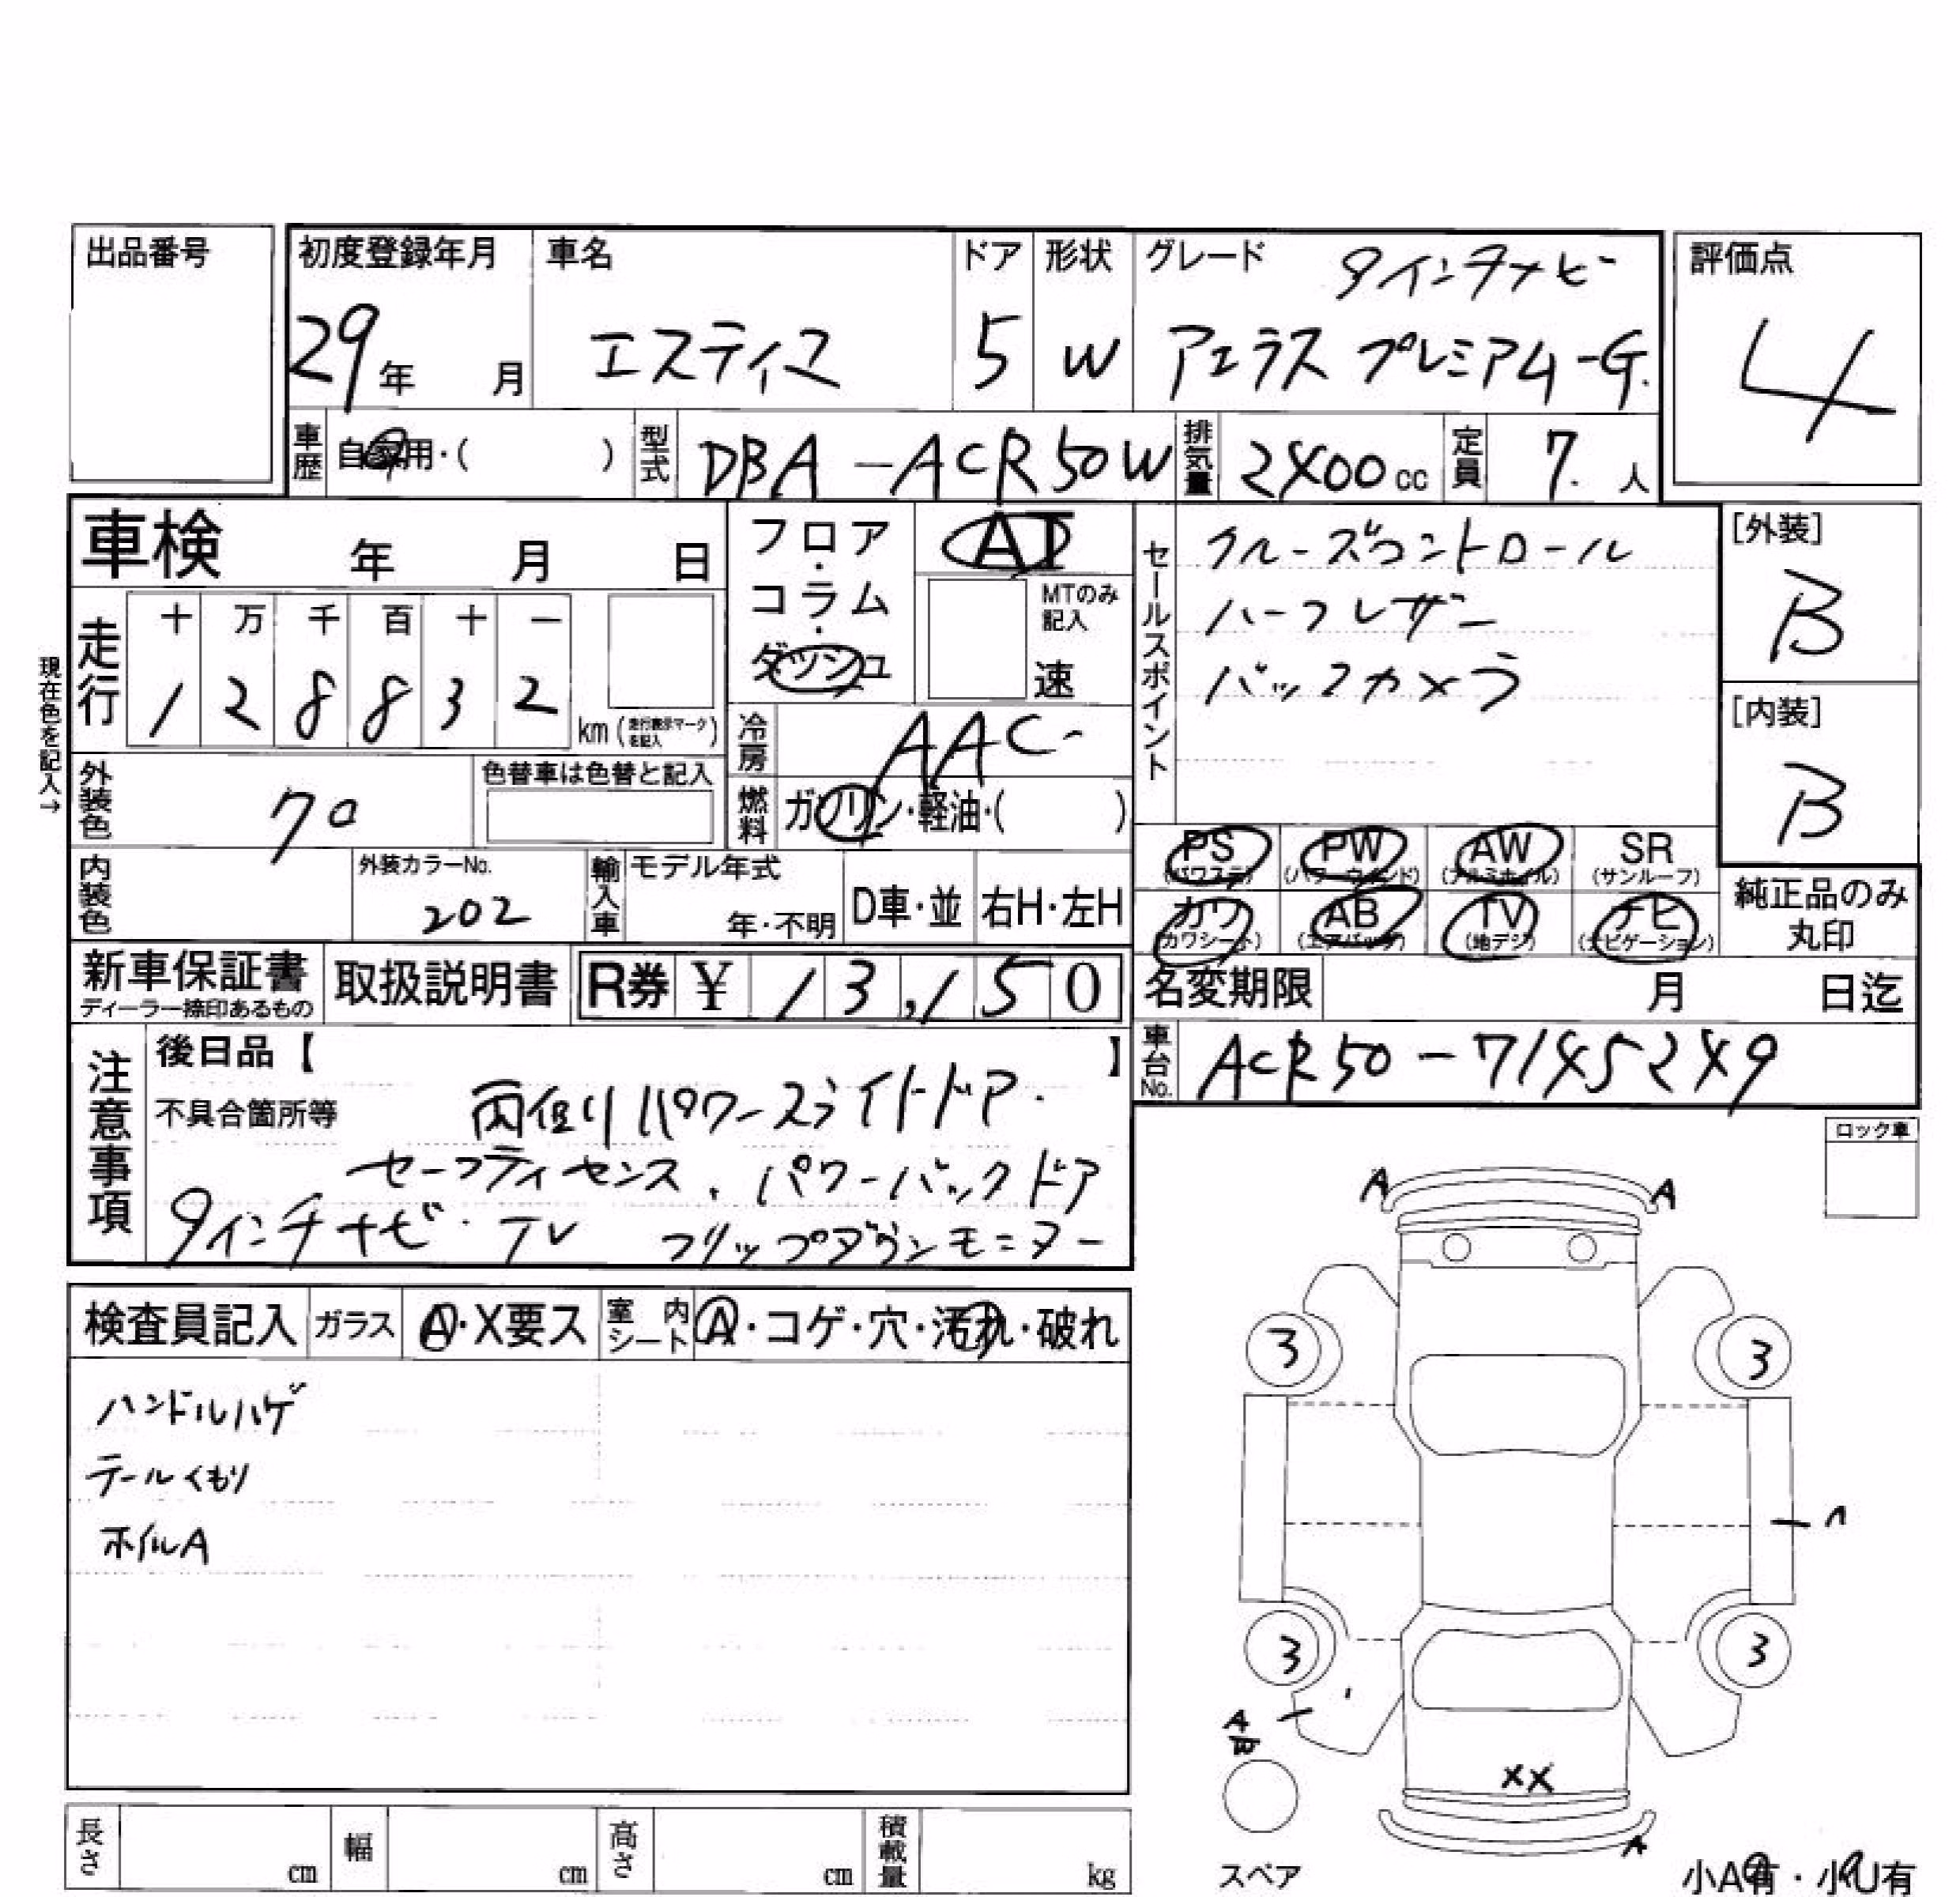 出品番号
初度登録年月 車名 ドア 形状 グレード 9インチナビ 評価点
29年 月 エスティマ 5 W アエラス プレミアム-G. 4
車歴 自家用・( ) 型式 DBA-ACR50W 排気量 2400cc 定員 7.人
車検 年 月 日
フロア・コラム・ダッシュ AT
MTのみ記入 速
セールスポイント
クルーズコントロール
ハーフレザー
バックカメラ
[外装]
B
[内装]
B
現在色を記入→
走行 十 万 千 百 十 一
1 2 8 8 3 2 km(走行表示マークを記入)
冷房 AAC-
外装色 クロ 色替車は色替と記入
燃料 ガソリン・軽油・( )
内装色 外装カラーNo. 202
輸入車 モデル年式 年・不明 D車・並 右H・左H
PS(パワステ) PW(パワーウィンド) AW(アルミホイル) SR(サンルーフ)
カワ(カワシート) AB(エアバッグ) TV(地デジ) ナビ(ナビゲーション)
純正品のみ丸印
新車保証書 ディーラー捺印あるもの 取扱説明書 R券 ¥ 13,150
名変期限 月 日迄
車台No. ACR50-7145249
注意事項 後日品【 】
不具合箇所等 両側パワースライドドア.
セーフティセンス. パワーバックドア
9インチナビ・TV フリップダウンモニター
ロック車
検査員記入 ガラス A・X要ス 室内シート A・コゲ・穴・汚れ・破れ
ハンドルハゲ
テールくもり
ホイルA
A A
3 3
3 3
A
W
XX
A
スペア
小A有・小U有
長さ cm 幅 cm 高さ cm 積載量 kg